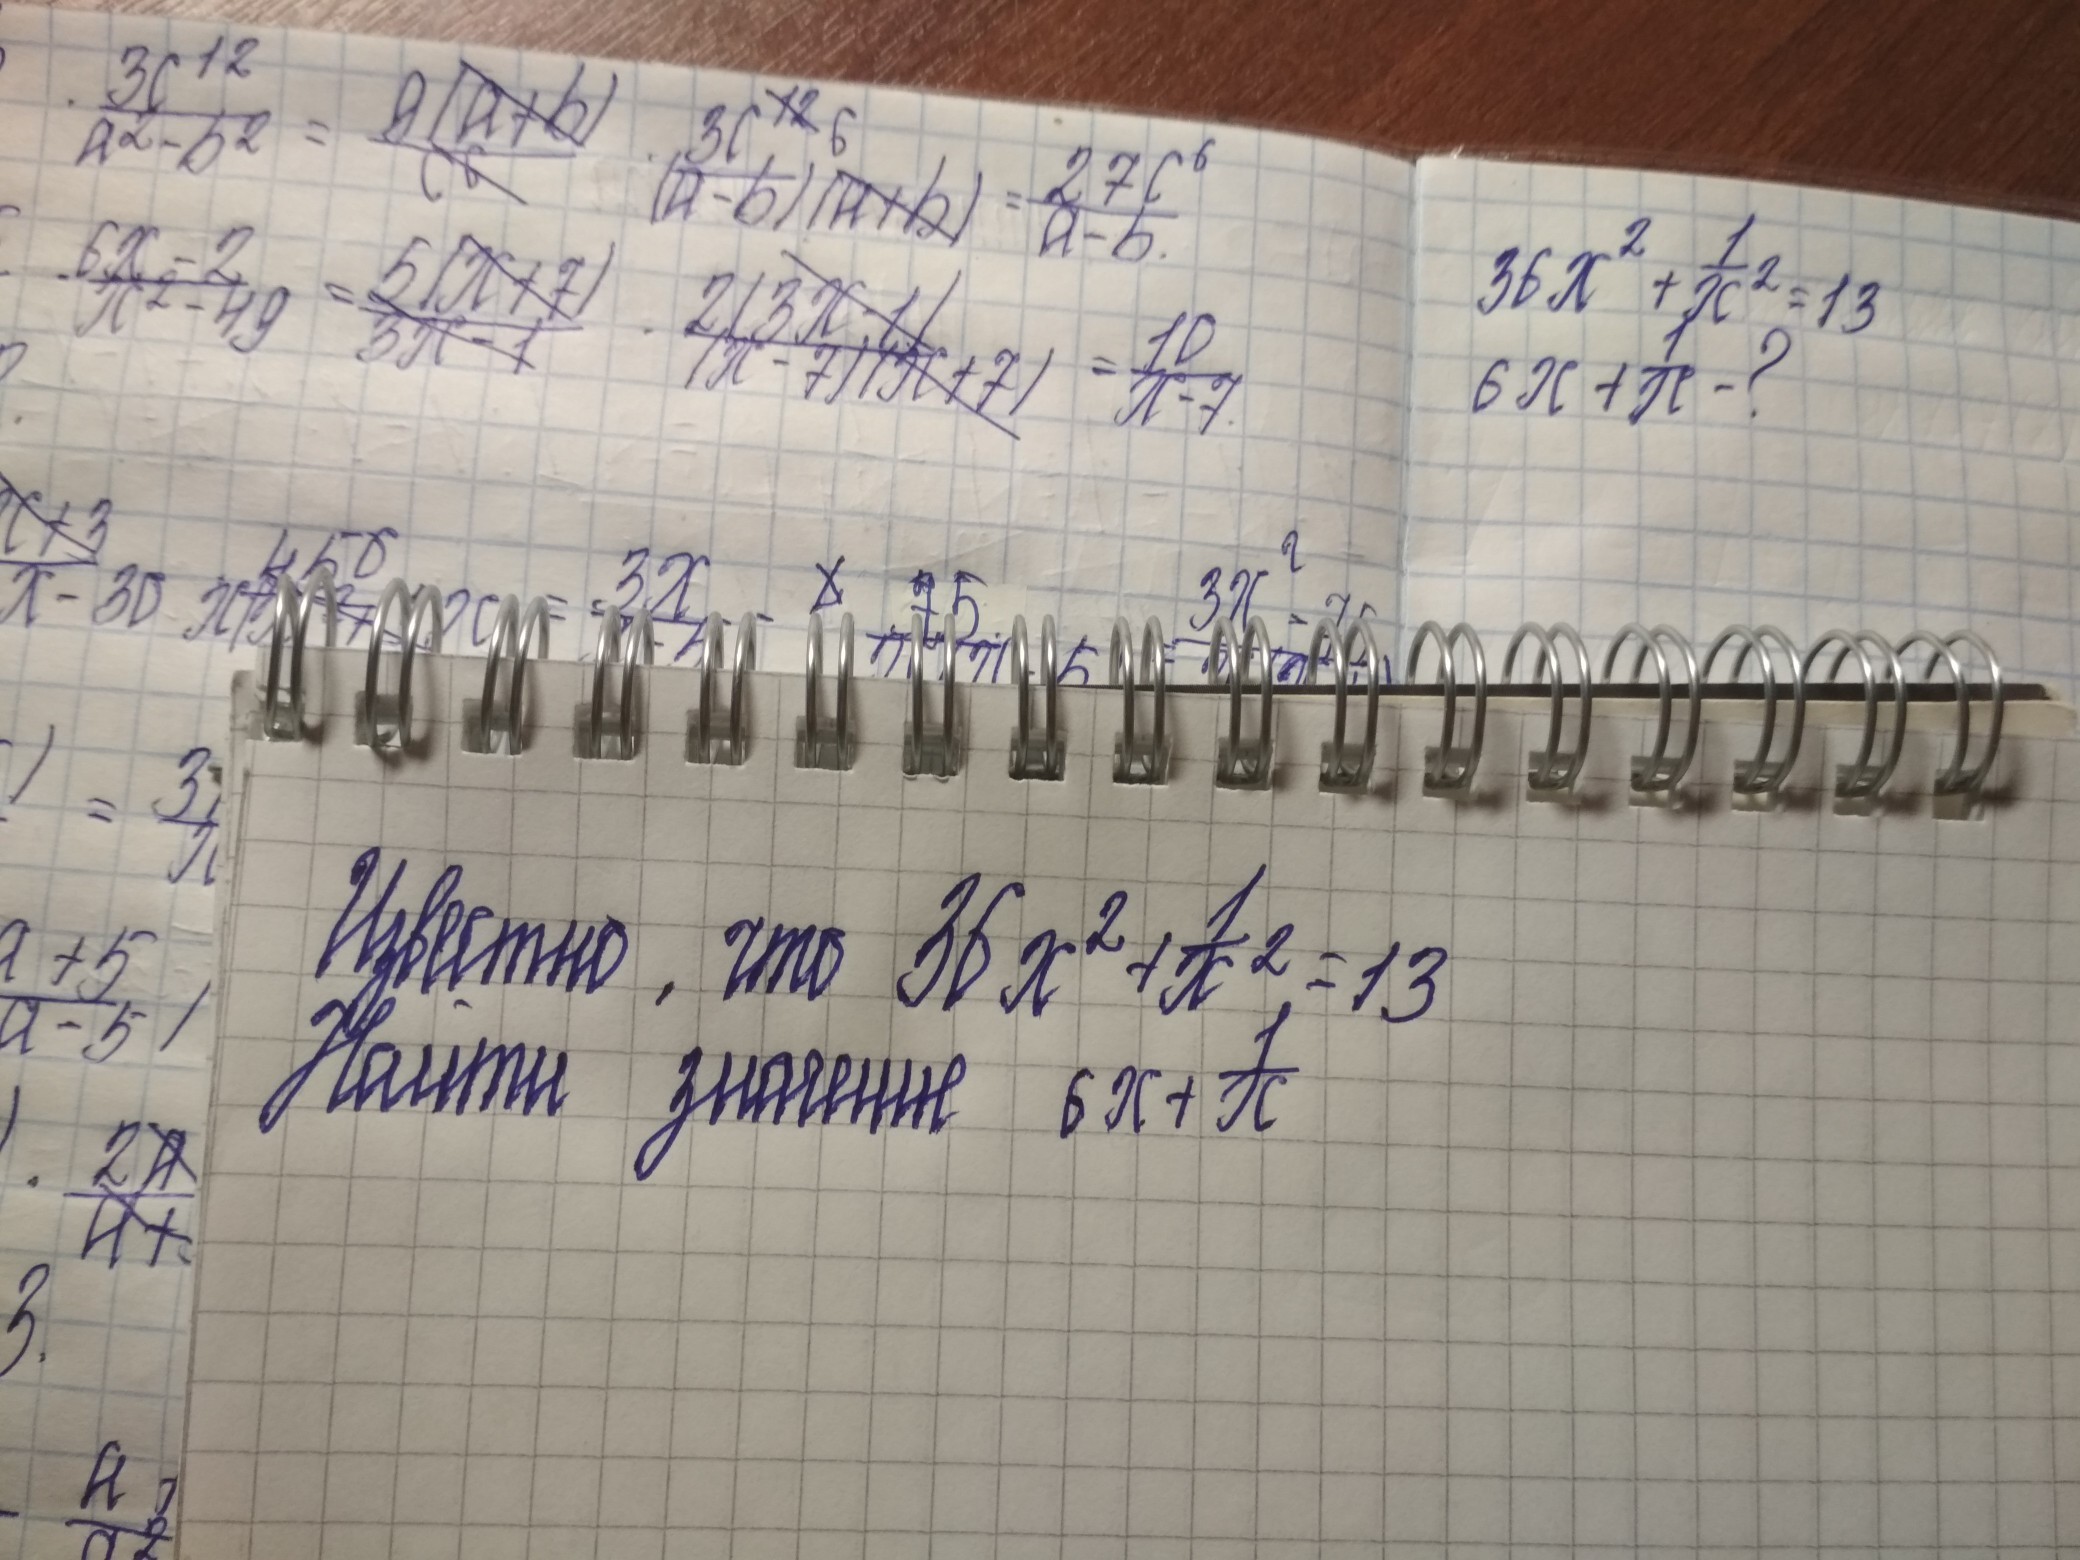 3c¹²/a²-b² = 9(a+b)/c⁶ · 3c¹² ⁶/(a-b)(a+b) = 27c⁶/a-b.
6x-2/x²-49 = 5(x+7)/3x-1 · 2(3x-1)/(x-7)(x+7) = 10/x-7.
36x²+1/x²=13
6x+1/x-?
x+3
x-30
450
3x
75
3x²-75
=
a+5
a-5
3.
Известно, что 36x²+1/x²=13
Найти значение 6x+1/x